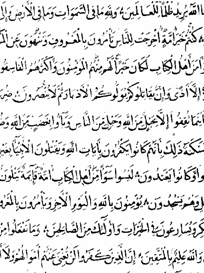 اللَّهُ يُرِيدُ ظُلْمًا لِلْعَالَمِينَ وَلِلَّهِ مَا فِي السَّمَاوَاتِ وَمَا فِي الْأَرْضِ
كُنْتُمْ خَيْرَ أُمَّةٍ أُخْرِجَتْ لِلنَّاسِ تَأْمُرُونَ بِالْمَعْرُوفِ وَتَنْهَوْنَ عَنِ
ءَامَنَ أَهْلُ الْكِتَابِ لَكَانَ خَيْرًا لَهُمْ مِنْهُمُ الْمُؤْمِنُونَ وَأَكْثَرُهُمُ الْفَاسِقُو
إِلَّا أَذًى وَإِنْ يُقَاتِلُوكُمْ يُوَلُّوكُمُ الْأَدْبَارَ ثُمَّ لَا يُنْصَرُونَ
مَا ثُقِفُوا إِلَّا بِحَبْلٍ مِنَ اللَّهِ وَحَبْلٍ مِنَ النَّاسِ وَبَاءُو بِغَضَبٍ مِنَ اللَّهِ
سْكَنَةُ ذَلِكَ بِأَنَّهُمْ كَانُوا يَكْفُرُونَ بِآيَاتِ اللَّهِ وَيَقْتُلُونَ الْأَنْبِيَاءَ بِغَيْرِ
وَكَانُوا يَعْتَدُونَ لَيْسُوا سَوَاءً مِنْ أَهْلِ الْكِتَابِ أُمَّةٌ قَائِمَةٌ يَتْلُونَ
وَهُمْ يَسْجُدُونَ يُؤْمِنُونَ بِاللَّهِ وَالْيَوْمِ الْآخِرِ وَيَأْمُرُونَ بِالْمَعْرُ
كَرِ وَيُسَارِعُونَ فِي الْخَيْرَاتِ وَأُولَئِكَ مِنَ الصَّالِحِينَ وَمَا تَفْعَلُوا مِنْ
وَاللَّهُ عَلِيمٌ بِالْمُتَّقِينَ إِنَّ الَّذِينَ كَفَرُوا لَنْ تُغْنِيَ عَنْهُمْ أَمْوَالُهُمْ وَلَا